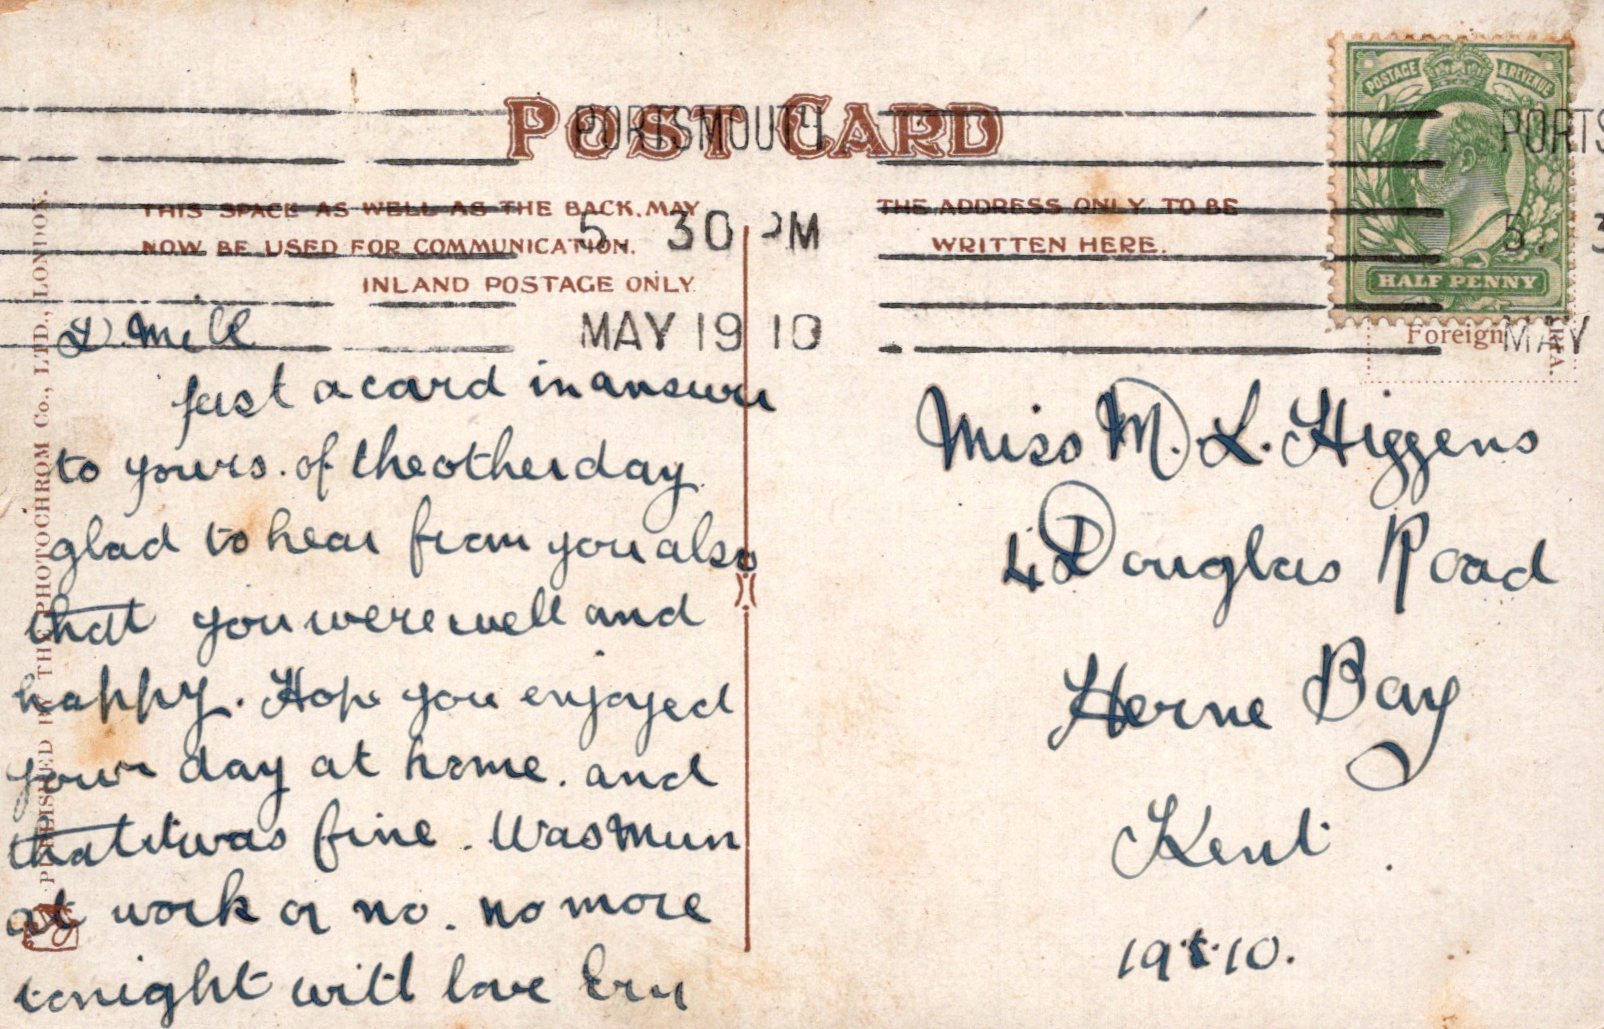 POST CARD
PORTSMOUTH
5. 30 PM
MAY 19 10
THIS SPACE AS WELL AS THE BACK, MAY
NOW BE USED FOR COMMUNICATION.
INLAND POSTAGE ONLY
THE ADDRESS ONLY TO BE
WRITTEN HERE.
POSTAGE & REVENUE
HALF PENNY
PORTS
5. 3
MAY
Foreign
PUBLISHED BY THE PHOTOCHROM Co., LTD., LONDON.
D. Mill
Just a card in answer
to yours. of the other day.
glad to hear from you also
that you were well and
happy. Hope you enjoyed
your day at home. and
that it was fine. Was Mum
at work or no. no more
tonight with love
Miss M. L. Higgens
4 Douglas Road
Herne Bay
Kent.
19.5.10.